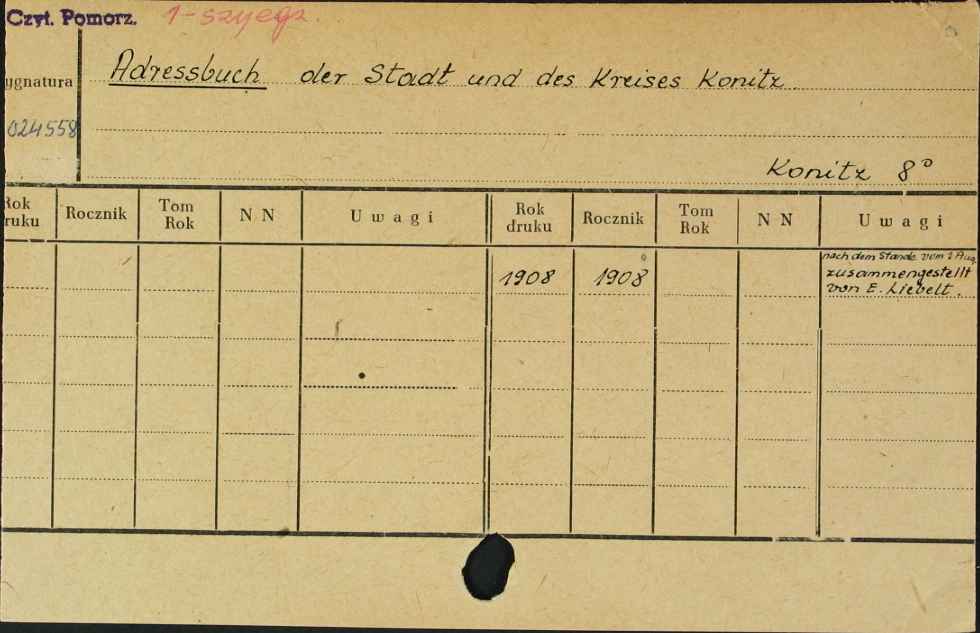 Czyt. Pomorz. 1-szy egz.
ygnatura Adressbuch der Stadt und des Kreises Konitz.
024558
Konitz 8°
Rok druku Rocznik Tom Rok N N Uwagi Rok druku Rocznik Tom Rok N N Uwagi
nach dem Stande vom 1 Aug.
1908 1908 zusammengestellt
von E. Liebelt.